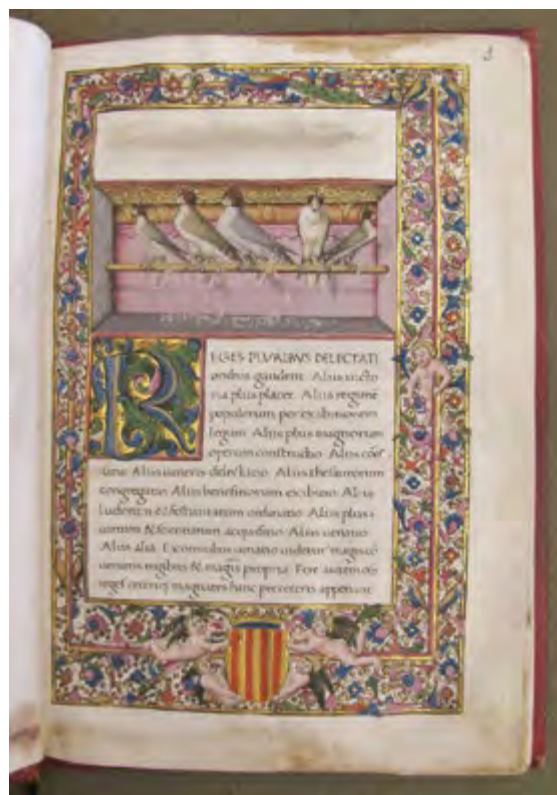 REGES PLURIBUS DELECTATI
onibus gaudent. Alius uicto
ria plus placet. Alius regimē
populorum, per exibitionem
legum. Alius plus magnorum
operum constructio. Alius
Alius ueneris delectatio. Alius thesaurorum
congregatio. Alius beneficiorum exibitio.
ludorum & festiuitatum ordinatio. Alius
& scientiarum acquisitio. Alius uenatio.
Alius alia. Ex omnibus uenatio uidetur magis cō
ueniens regibus & magis propria. Fere autem oēs
reges ceteriq magnates hunc pre ceteris